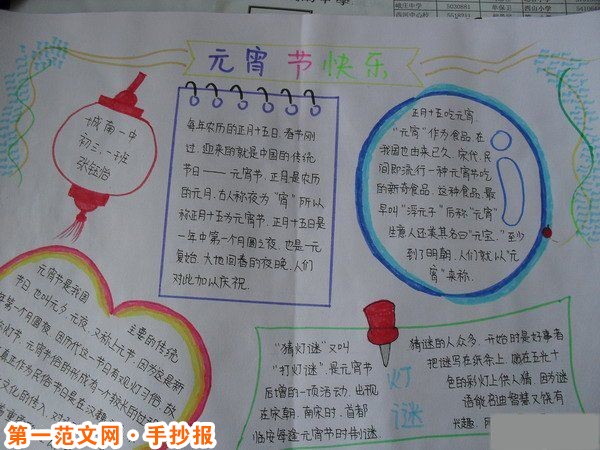 元宵节快乐
城南一中
初三、一班
张钰怡
每年农历的正月十五日.春节刚
过.迎来的就是中国的传统
节日——元宵节.正月是农历
的元月.古人称夜为"宵"所以
称正月十五为元宵节.正月十五日是
一年中第一个月圆之夜.也是一元
复始.大地回春的夜晚.人们
对此加以庆祝.
正月十五吃元宵.
"元宵"作为食品.在
我国也由来已久.宋代.民
间即流行一种元宵节吃
的新奇食品.这种食品.最
早叫"浮元子"后称"元宵"
生意人还美其名曰"元宝."至少
到了明朝.人们就以"元
宵"来称.
元宵节是我国
主要的传统
节日.也叫元夕.元夜.又称上元节.因为这是新
年第一个月圆夜.因历代这一节日有观灯习俗.故
灯节.元宵节俗的形成有一个较长的过
真正作为民俗节日是在汉魏
文化的传入.
灯谜
"猜灯谜"又叫
"打灯谜".是元宵节
后增的一项活动.出现
在宋朝.南宋时.首都
临安每逢元宵节时制谜.
猜谜的人众多.开始时是好事者
把谜写在纸条上.贴在五光十
色的彩灯上供人猜.因为谜
语能启迪智慧又饶有
兴趣.
第一范文网·手抄报
5030881
单保卫
5518231
西山小学